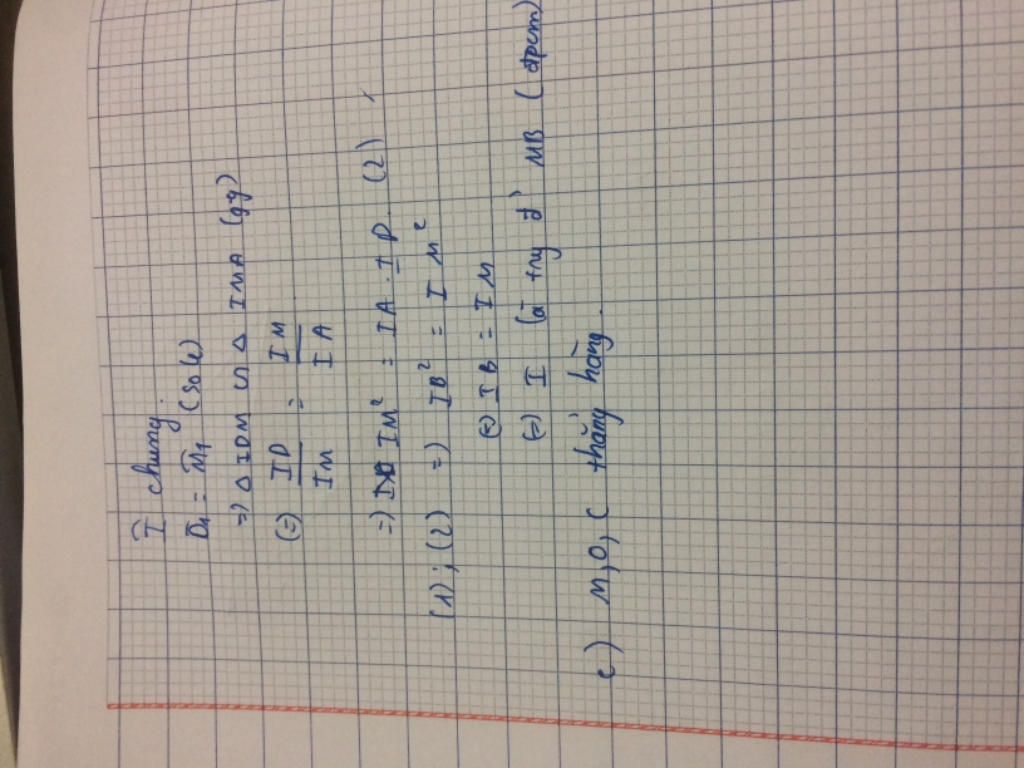 Î chung.
D̂₁ = M̂₁ (SoLe)
=> Δ IDM ∽ Δ IMA (gg)
(=) ID/IM = IM/IA
=> IM² = IA . ID (2)
(1) ; (2) => IB² = IM²
(=) IB = IM
(=) I là MB (đpcm)
c) M, O, C thẳng hàng.